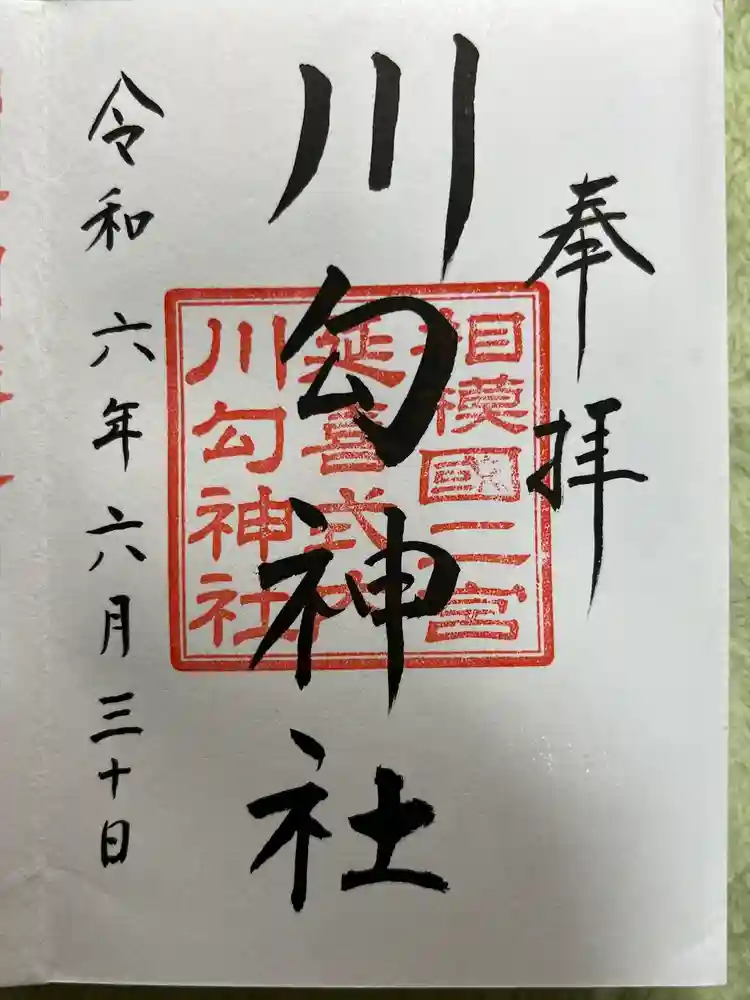 奉拝
相模國二宮
延喜式内
川勾神社
川勾神社
令和六年六月三十日